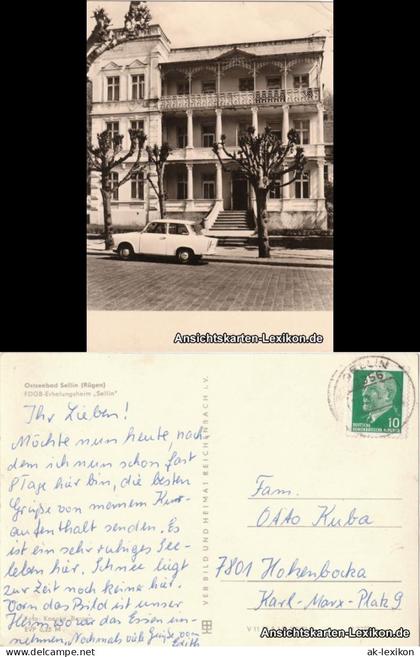 Ansichtskarten-Lexikon.de
Ostseebad Sellin (Rügen)
FDGB-Erholungsheim „Sellin"
Ihr Lieben!
Möchte nun heute, nach
dem ich nun schon fast
8 Tage hier bin, die besten
Grüße von meinem Kur-
aufenthalt senden. Es
ist ein sehr ruhiges See-
leben hier. Schnee liegt
zur Zeit noch keine hier.
Vorn das Bild ist unser
Heim wo wir das Essen un-
nehmen. Nochmals viele Grüße von
Edith
VEB BILD UND HEIMAT REICHENBACH I. V.
SELLIN
2356
10
DEUTSCHE
DEMOKRATISCHE REPUBLIK
Fam.
Otto Kuba
7801 Hohenbocka
Karl-Marx-Platz 9
Ansichtskarten-Lexikon.de
ak-lexikon